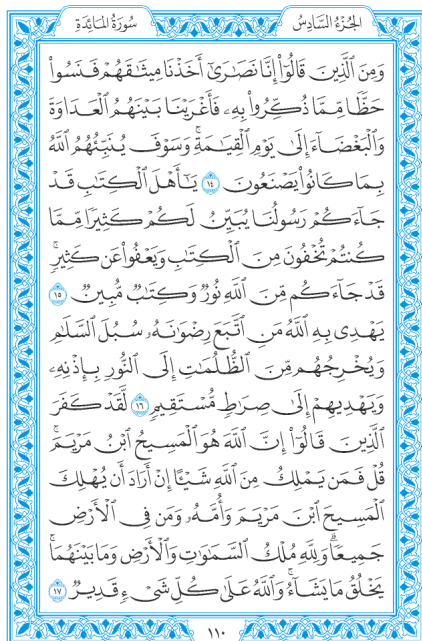 الجُزْءُ السَّادِسُ
سُورَةُ المَائِدَةِ
وَمِنَ ٱلَّذِينَ قَالُوٓا۟ إِنَّا نَصَٰرَىٰٓ أَخَذْنَا مِيثَٰقَهُمْ فَنَسُوا۟
حَظًّا مِّمَّا ذُكِّرُوا۟ بِهِۦ فَأَغْرَيْنَا بَيْنَهُمُ ٱلْعَدَاوَةَ
وَٱلْبَغْضَآءَ إِلَىٰ يَوْمِ ٱلْقِيَٰمَةِ ۚ وَسَوْفَ يُنَبِّئُهُمُ ٱللَّهُ
بِمَا كَانُوا۟ يَصْنَعُونَ ١٤ يَٰٓأَهْلَ ٱلْكِتَٰبِ قَدْ
جَآءَكُمْ رَسُولُنَا يُبَيِّنُ لَكُمْ كَثِيرًا مِّمَّا
كُنتُمْ تُخْفُونَ مِنَ ٱلْكِتَٰبِ وَيَعْفُوا۟ عَن كَثِيرٍ ۚ
قَدْ جَآءَكُم مِّنَ ٱللَّهِ نُورٌ وَكِتَٰبٌ مُّبِينٌ ١٥
يَهْدِى بِهِ ٱللَّهُ مَنِ ٱتَّبَعَ رِضْوَٰنَهُۥ سُبُلَ ٱلسَّلَٰمِ
وَيُخْرِجُهُم مِّنَ ٱلظُّلُمَٰتِ إِلَى ٱلنُّورِ بِإِذْنِهِۦ
وَيَهْدِيهِمْ إِلَىٰ صِرَٰطٍ مُّسْتَقِيمٍ ١٦ لَّقَدْ كَفَرَ
ٱلَّذِينَ قَالُوٓا۟ إِنَّ ٱللَّهَ هُوَ ٱلْمَسِيحُ ٱبْنُ مَرْيَمَ ۚ
قُلْ فَمَن يَمْلِكُ مِنَ ٱللَّهِ شَيْـًٔا إِنْ أَرَادَ أَن يُهْلِكَ
ٱلْمَسِيحَ ٱبْنَ مَرْيَمَ وَأُمَّهُۥ وَمَن فِى ٱلْأَرْضِ
جَمِيعًا ۗ وَلِلَّهِ مُلْكُ ٱلسَّمَٰوَٰتِ وَٱلْأَرْضِ وَمَا بَيْنَهُمَا ۚ
يَخْلُقُ مَا يَشَآءُ ۚ وَٱللَّهُ عَلَىٰ كُلِّ شَىْءٍ قَدِيرٌ ١٧
١١٠